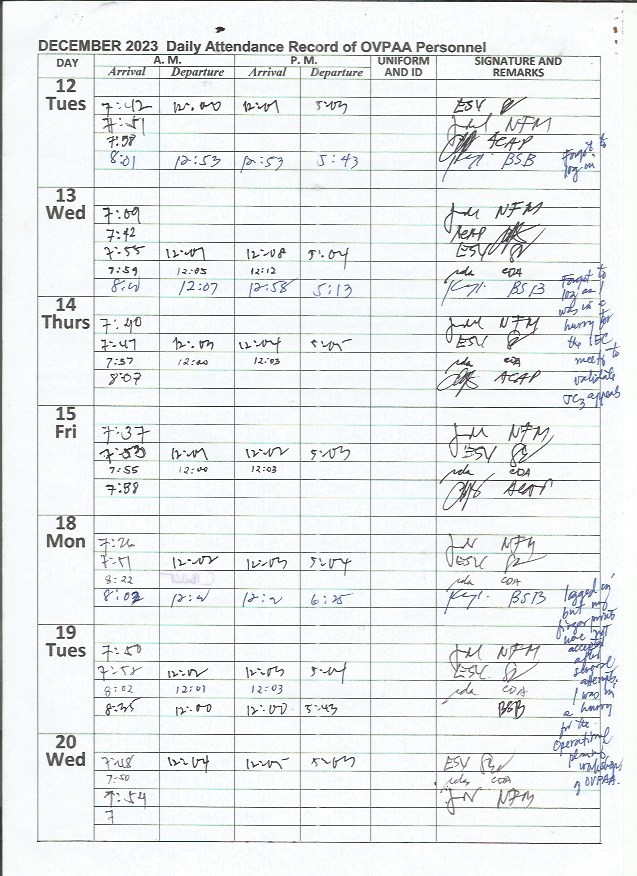 DECEMBER 2023 Daily Attendance Record of OVPAA Personnel
DAY A. M. P. M. UNIFORM AND ID SIGNATURE AND REMARKS
Arrival Departure Arrival Departure
12 Tues
7:42 12:00 12:01 5:03 ESV
7:51 NFM
7:58 ACAP
8:01 12:53 12:53 5:43 BSB Forgot to log in.
13 Wed
7:09 NFM
7:42 ACAP
7:55 12:07 12:08 5:04 ESV
7:59 12:05 12:12 CDA
12:07 12:58 5:13 BSB Forgot to log as I was in a hurry for the IEC meeting to validate JC3 appeals
14 Thurs
7:40 NFM
7:47 12:03 12:04 ESV
7:57 12:00 12:03 CDA
8:07 ACAP
15 Fri
7:37 NFM
12:01 12:02 5:03 ESV
7:55 12:00 12:03 CDA
7:58 ACAP
18 Mon
7:26 NFM
7:51 12:02 12:03 5:04 ESV
8:22 CDA
8:02 6:25 BSB logged in but my finger prints were not accepted after several attempts. I was in a hurry for the Operational planning workshop of OVPAA.
19 Tues
7:50 NFM
7:52 12:02 12:03 5:04 ESV
8:02 12:01 12:03 CDA
8:35 12:00 12:00 5:43 BSB
20 Wed
7:48 12:04 12:05 5:03 ESV
7:50 CDA
7:54 NFM
7